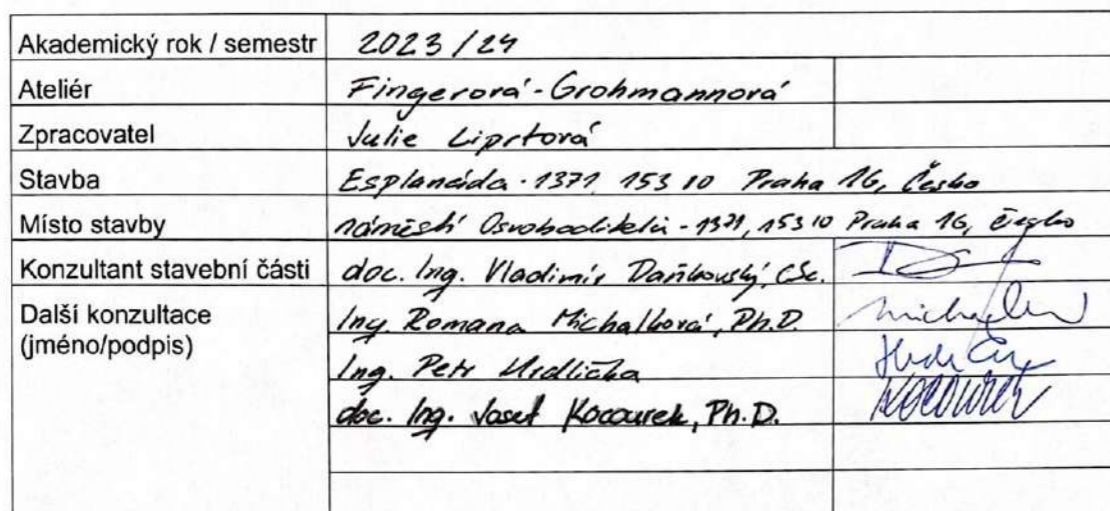 Akademický rok / semestr 2023 / 24
Ateliér Fingerová - Grohmannová
Zpracovatel Julie Liprtová
Stavba Esplanáda - 1371, 153 10 Praha 16, Česko
Místo stavby náměstí Osvoboditelů - 1371, 153 10 Praha 16, Česko
Konzultant stavební části doc. Ing. Vladimír Daňkovský, CSc.
Další konzultace Ing. Romana Michalková, Ph.D.
(jméno/podpis) Ing. Petr Hrdlička
doc. Ing. Josef Kocourek, Ph.D. Kocourek